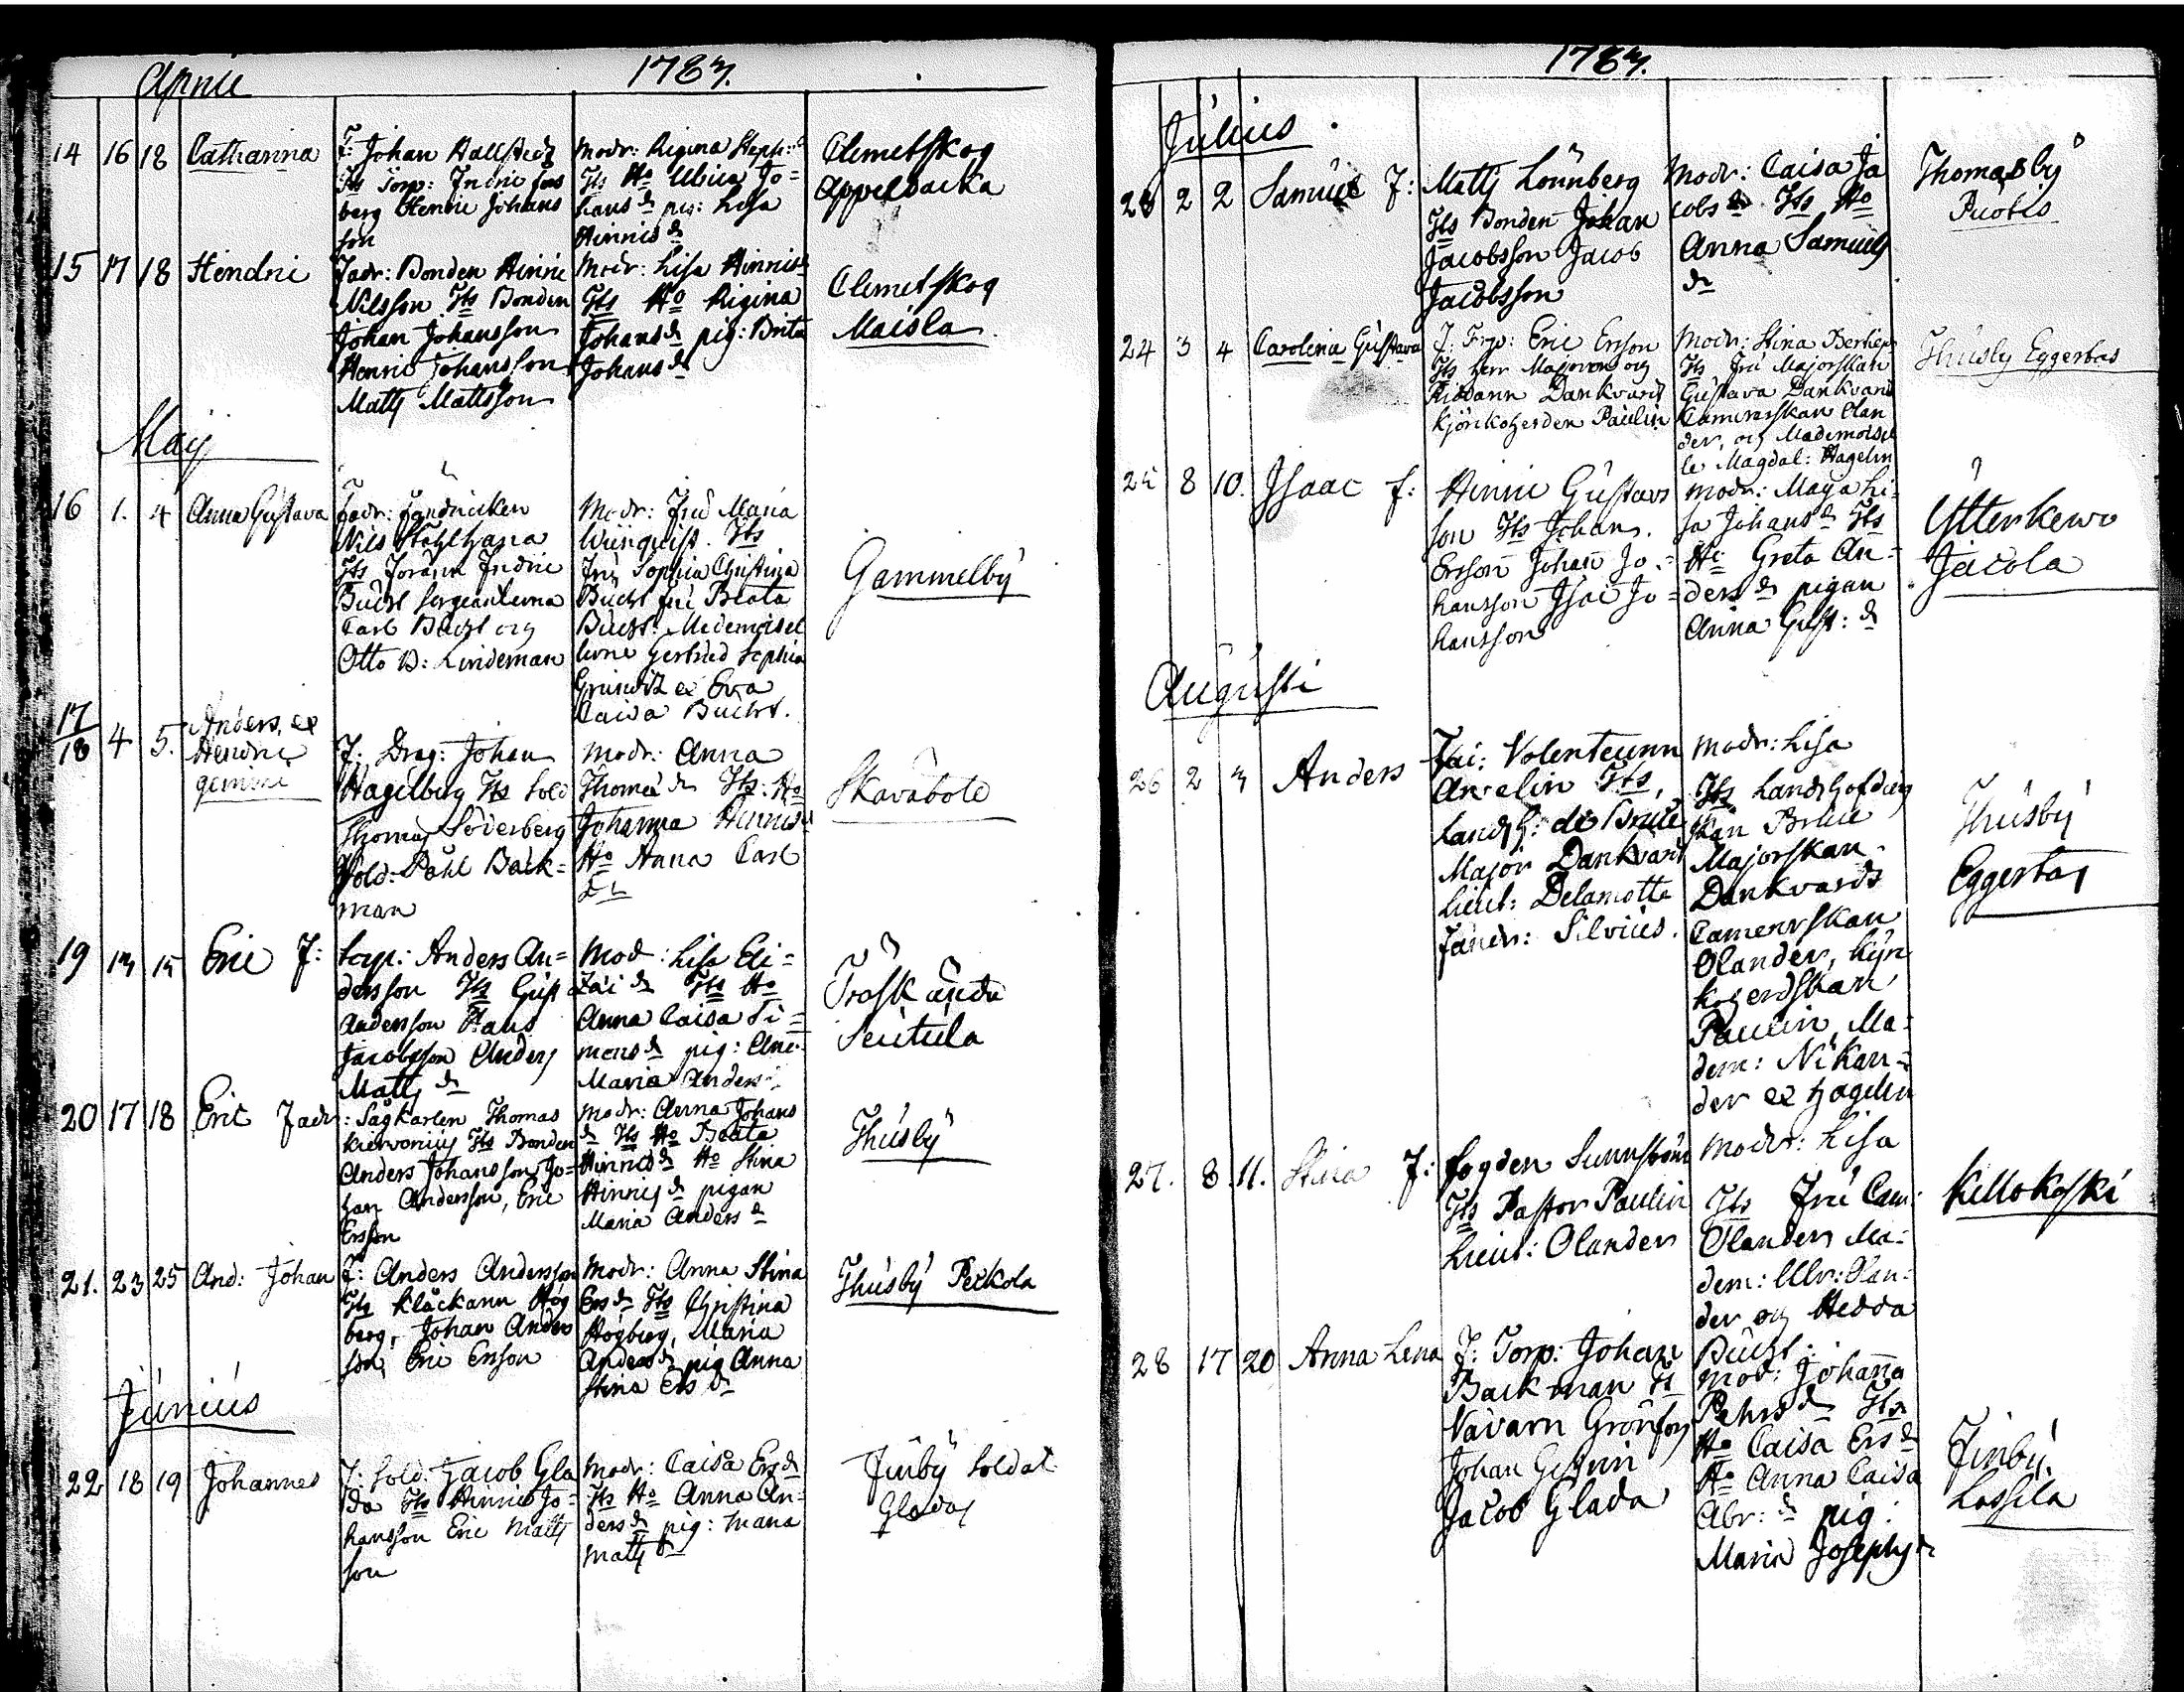 April 1783.
14 16 18 Catharina
F: Johan Hallstedt
Fts Torp: Indric Fors
berg Henric Johans
son
Modr: Regina Steph:
Fts Ho Ulrica Jo=
hans dr pig: Lisa
Hinrics dr
Clemetskog
Appelbacka
15 17 18 Hendric
Fadr: Bonden Hinric
Nilsson Fts Bonden
Johan Johansson
Henric Johansson
Matts Mattsson
Modr: Lisa Hinrics dr
Fts Ho Rigina
Johans dr pig: Brita
Johans dr
Clemetskog
Maisla
Maij
16 1. 4 Anna Gustava
Fadr: Fendricken
Nils Stålhana
Fts Indric
Bucht Sergeanterna
Carl Bucht och
Otto B: Lindeman
Modr: Fru Maria
Fts
Fru Sophia Christina
Bucht fru Beata
Bucht: Mademoisel
lerne Gertrud Sophia
et Eva
Caisa Bucht.
Gammelby
17
18 4 5. Anders, et
Hendric
gemini
F: Drag: Johan
Hagelberg Fts Sold
Thomas Söderberg
Sold: Påhl Back=
man
Modr: Anna
Thomæ dr Fts: Ho
Johanna Hinrics dr
Ho Anna Carls
dr
Skavaböle
19 13 15 Eric F:
torp: Anders An=
dersson Fts Gust
Andersson Hans
Jacobsson Anders
Matts dr
Mod: Lisa Eli=
zæi dr Fts Ho
Anna Caisa Si=
mons dr pig: Ann
Maria Anders
Träskända
Seutula
20 17 18 Eric Fadr
: Sågkarlen Thomas
Kiervonius Fts Bonden
Anders Johansson, Jo=
han Andersson, Eric
Ersson
Modr: Anna Johans
dr Fts Ho Beata
Hinrics dr Ho Stina
Hinrics dr pigan
Maria Anders dr
Thusby
21. 23 25 And: Johan
F: Anders Andersson
Fts Klåckarn Hög
berg, Johan Anders
son, Eric Ersson
Modr: Anna Stina
Ers dr Fts Christina
Högberg, Maria
Anders dr pig Anna
Stina Ers dr
Thusby Peckola
Junius
22 18 19 Johannes
F: Sold. Jacob Gla
da Fts Hinric Jo=
hansson Eric Matts
son
Modr: Caisa Ers dr
Fts Ho Anna An=
ders dr pig: Maria
Matts dr
Finby Soldat
Gladas
1783.
Julius
23 2 2 Samuel F:
Matts Lönnberg
Fts Bonden Johan
Jacobsson Jacob
Jacobsson
Modr: Caisa Ja
cobs dr Fts Ho
Anna Samuels
dr
Thomasby
Puotis
24 3 4 Carolina Gustava
F: Torp: Eric Ersson
Fts Herr Majoren och
Riddarn Dankvard
Kyrckoherden Paulin
Modr: Stina
Fts Fru Majorskan
Gustava Dankvard
Camererskan Olan
der, och Mademoisel
le Magdal: Hagelin
Thusby Eggertas
25 8 10. Isaac F:
Hinric Gustavs
son Fts Johan
Ersson Johan Jo=
hansson Isac Jo=
hansson
Modr: Maja Li
sa Johans dr Fts
Ho Greta An=
ders dr pigan
Anna Gust: dr
Ytterkervo
Jacola
Augusti
26 2 3 Anders
Fai: Volenteurn
Avelin Fts,
Landsh: de Bruce
Major Dankvard
Lieut: Delamotte
Fändr: Silvius.
Modr: Lisa
Fts Landshöfding
skan Bruce
Majorskan
Dankvards
Camererskan
Olander, Kyr
koherdskan
Paulin, Ma=
dem: Nikan=
der et Hagelin
Thusby
Eggertas
27. 8 11. Stina F:
Fogden Sunnström
Fts Pastor Paulin
Lieut: Olander
Modr: Lisa
Fts Fru Cam:
Olander Ma=
dem: Ulr: Olan=
der och Hedda
Bucht.
Kellokoski
28 17 20 Anna Lena
F: Torp: Johan
Backman Ft
Navarn Grönfors
Johan
Jacob Glada
Mod: Johanna
Pehrs dr Fts
Ho Caisa Ers dr
Ho Anna Caisa
Abr: dr pig:
Maria Josephs dr
Finby.
Lassila